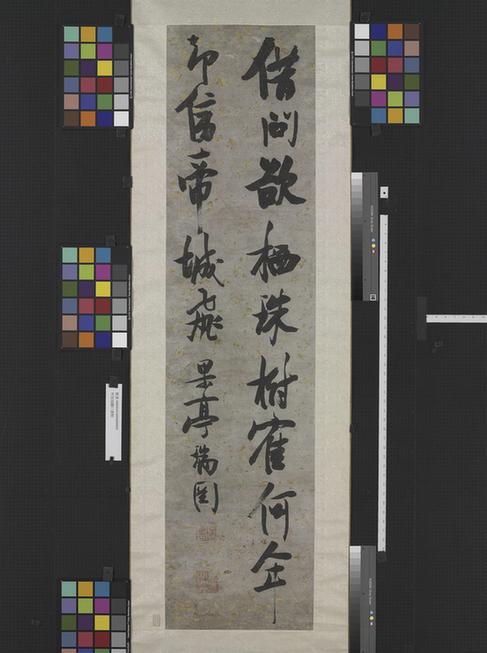 借問欲栖珠樹隺何年
却向帝城飛果亭瑞圖